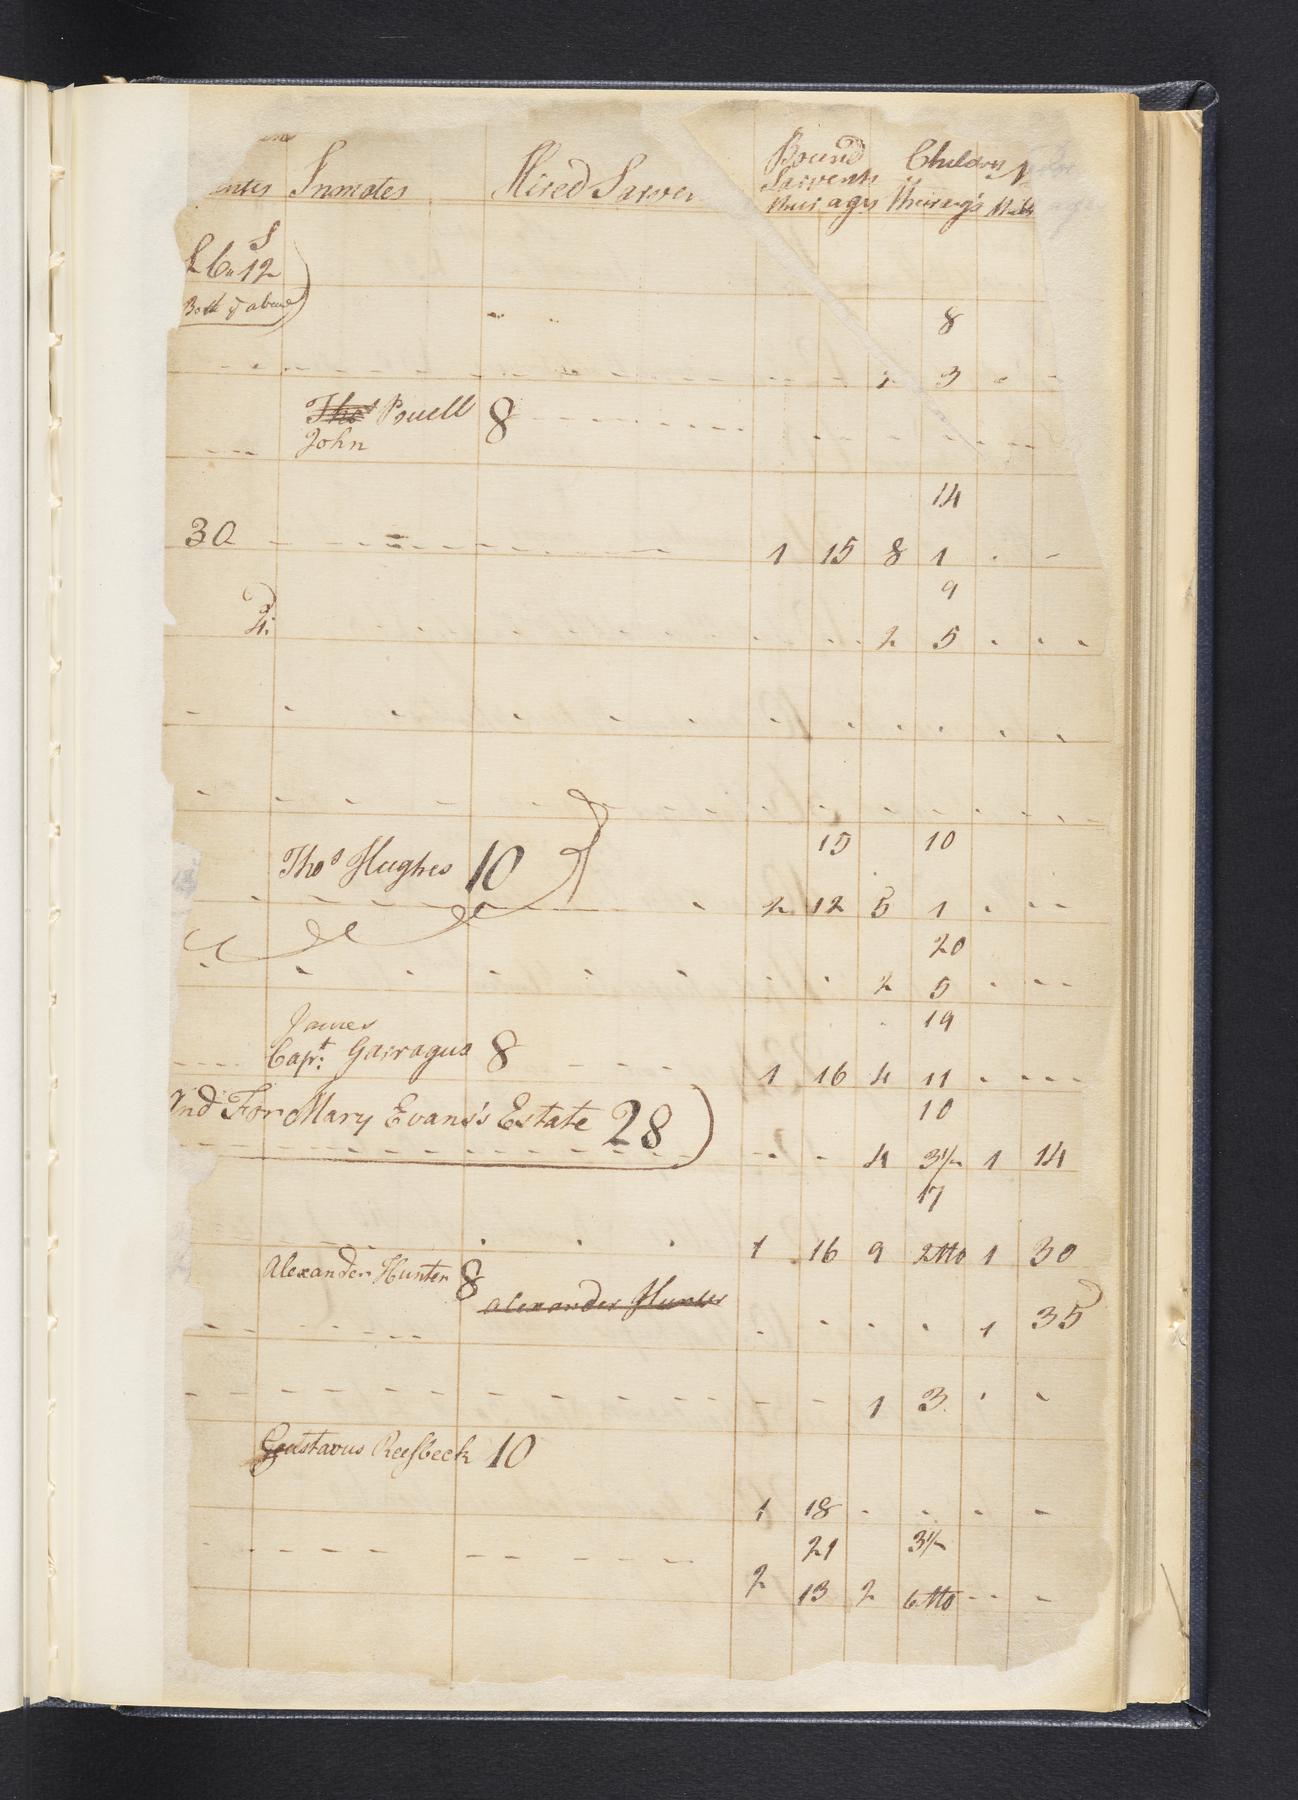 Bound Children N
Inmates Hired Sarvts Sarvents &
their ages their ag's
S
£6„12
Both of above
8
3
Tho.s Powell 8
John
14
30 1 15 8 1
9
D
4: 2 5
15 10
Tho.s Hughes 10
2 12 5 1
20
2 5
19
James
Capt: Garragus 8 1 16 4 11
10
And For Mary Evans's Estate 28
4 3½ 1 14
17
1 16 9 2Mo 1 30
Alexander Hunter 8
Alexander Hunter
1 35
1 3
Gustavus Reesbeck 10
1 18
21 3½
2 13 2 6Mo